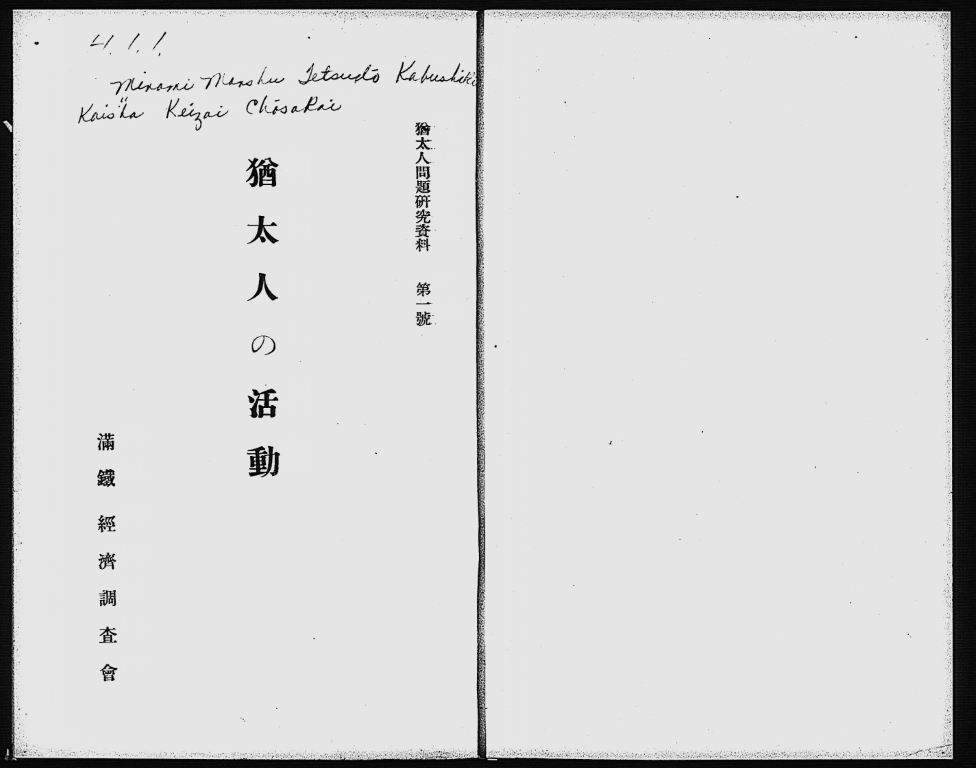 4.1.1.
Minami Manshu Tetsudō Kabushiki
Kaisha Keizai Chōsakai
猶太人問題硏究資料 第一號
猶太人の活動
滿鐵經濟調查會